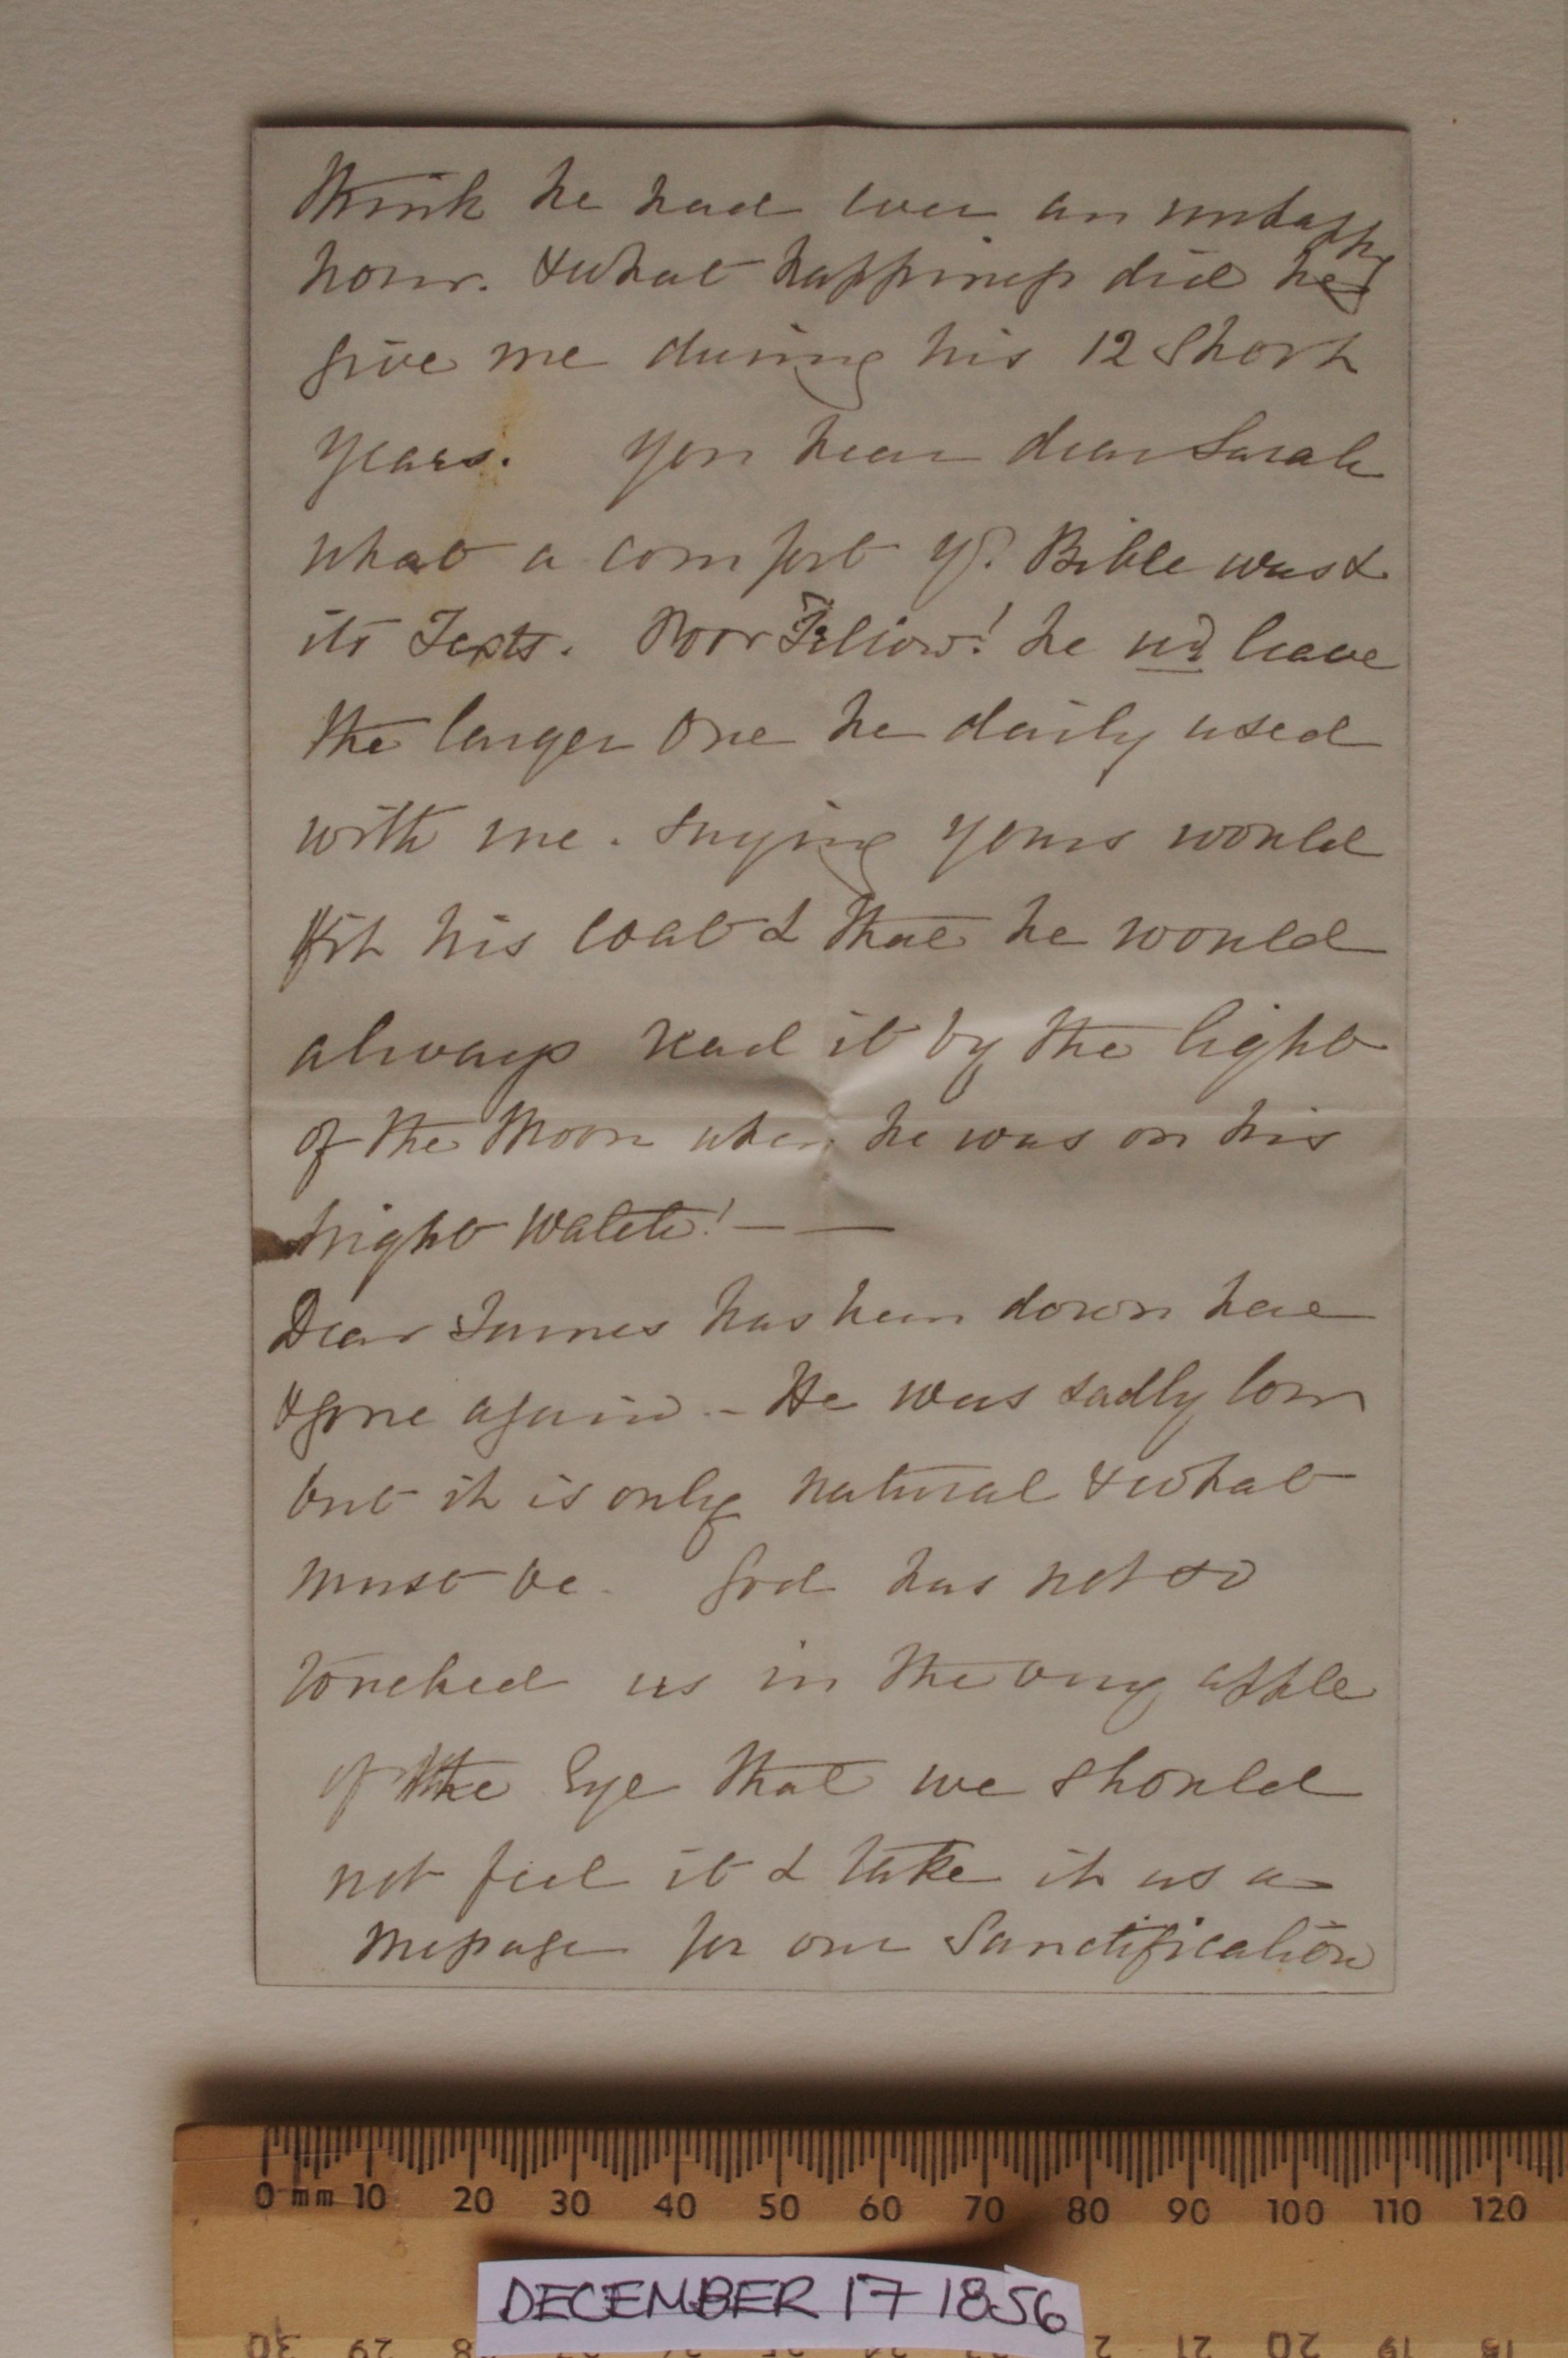 think he had ever an unhappy
hour. & what happiness did he
give me during his 12 short
years. You hear dear Sarah
what a comfort yr. Bible was &
its Texts. Poor Fellow! he wd leave
the larger one he daily used
with me. saying yours would
fit his coat & that he would
always read it by the light
of the Moon when he was on his
night watch! — —
Dear James has been down here
& gone again - He was sadly low
but it is only natural & what
must be. God has not so
touched us in the very apple
of the Eye that we should
not feel it & take it as a
message for our Sanctification
0 mm 10 20 30 40 50 60 70 80 90 100 110 120
DECEMBER 17 1856
30 29 21 20 19